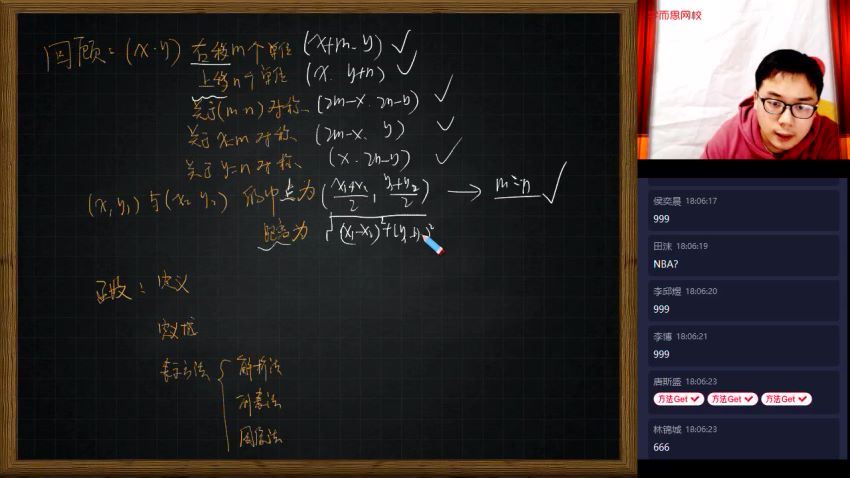 回顾：(x·y) 右移m个单位 (x+m·y) ✓
上移n个单位 (x·y+n) ✓
关于(m·n)对称 (2m-x·2n-y) ✓
关于x=m对称 (2m-x·y) ✓
关于y=n对称 (x·2n-y) ✓
(x₁y₁)与(x₂y₂)的中点为(x₁+x₂/2,y₁+y₂/2) → m=n ✓
距离为√(x₁-x₂)²+(y₁-y₂)²
函数：定义
定义域
表示方法 { 解析法
列表法
图像法
学而思网校
侯奕晨 18:06:17
999
田沫 18:06:19
NBA?
李邱煜 18:06:20
999
李博 18:06:21
999
唐斯盛 18:06:23
方法Get 方法Get 方法Get
林锦城 18:06:23
666